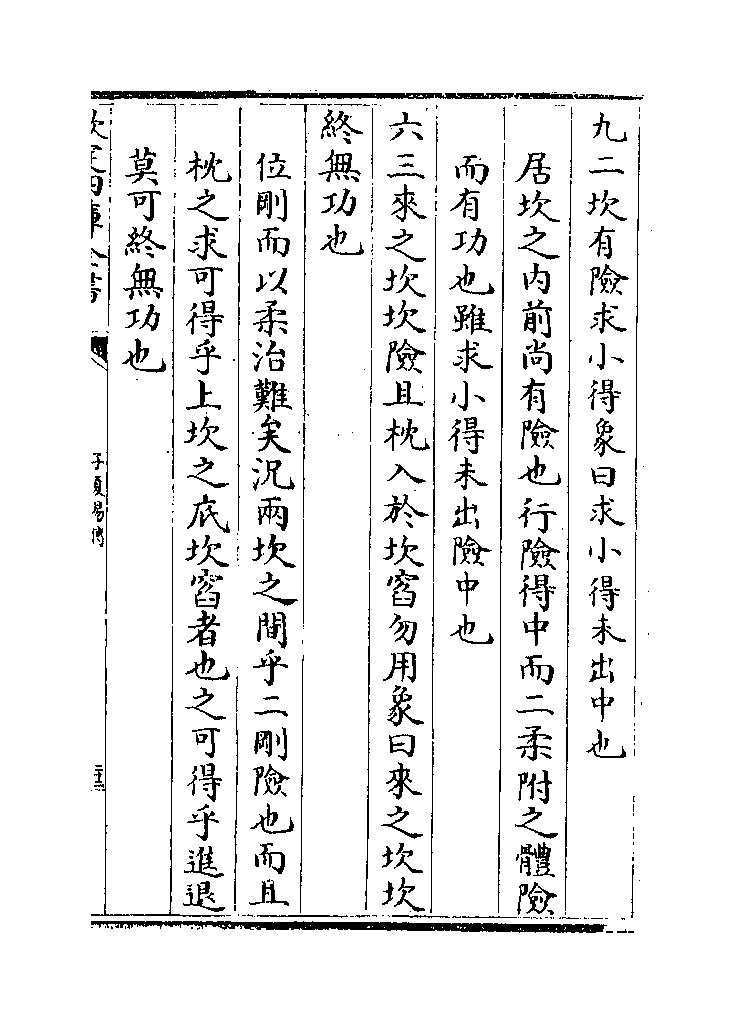 九二坎有險求小得象曰求小得未出中也
居坎之内前尚有險也行險得中而二柔附之體險
而有功也雖求小得未出險中也
六三來之坎坎險且枕入於坎窞勿用象曰來之坎坎
終無功也
位剛而以柔治難矣況兩坎之間乎二剛險也而且
枕之求可得乎上坎之底坎窞者也之可得乎進退
莫可終無功也
欽定四庫全書
子夏易傳